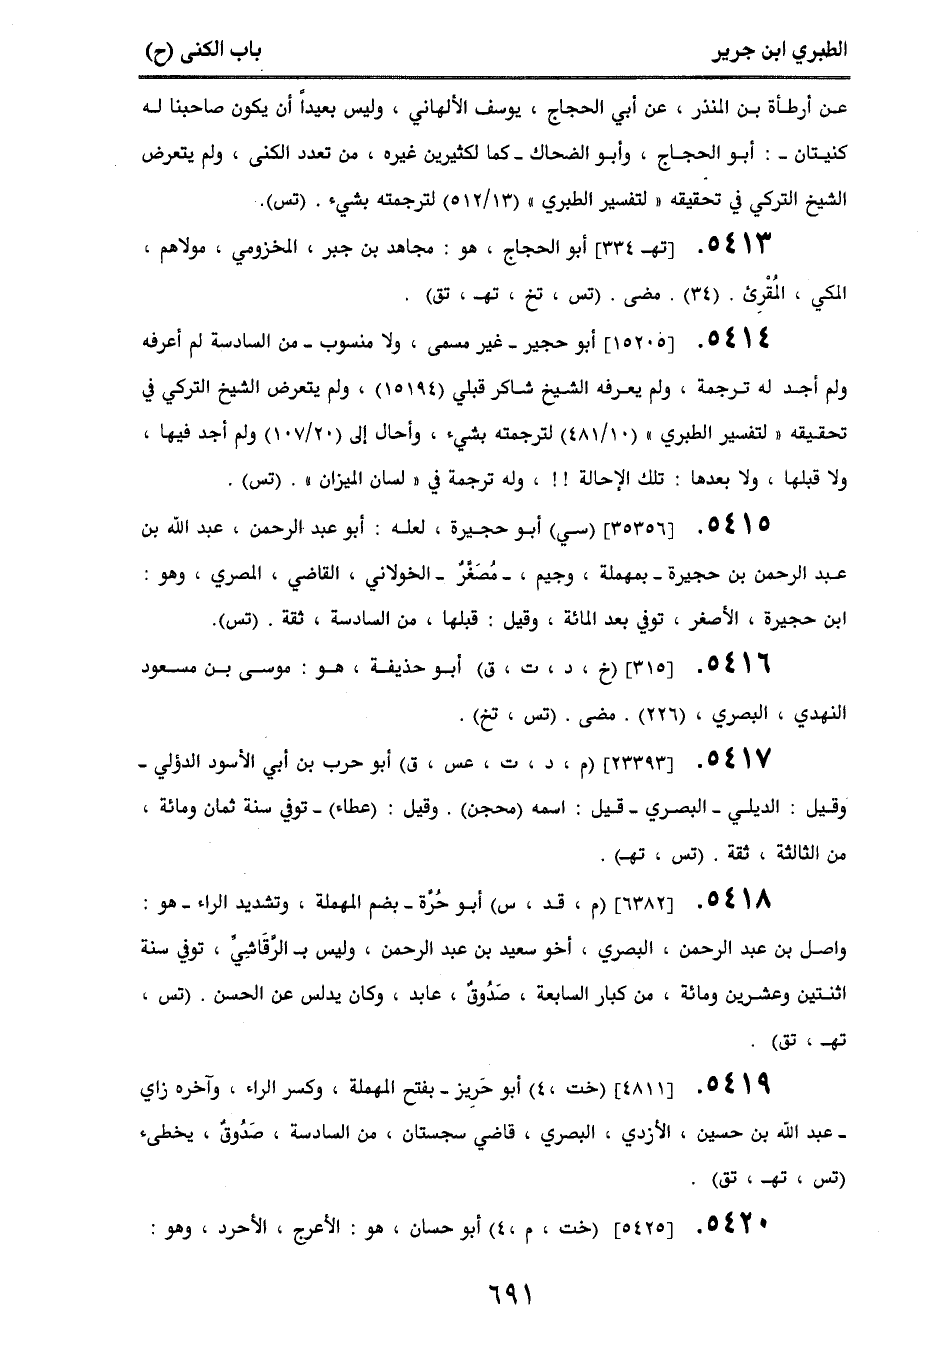 الطبري ابن جرير باب الكنى (ح)
عن أرطأة بن المنذر ، عن أبي الحجاج ، يوسف الألهاني ، وليس بعيداً أن يكون صاحبنا له
كنيتان - : أبو الحجاج ، وأبو الضحاك - كما لكثيرين غيره ، من تعدد الكنى ، ولم يتعرض
الشيخ التركي في تحقيقه « لتفسير الطبري » (٥١٢/١٣) لترجمته بشيء . (تس).
٥٤١٣. [تهـ ٣٣٤] أبو الحجاج ، هو : مجاهد بن جبر ، المخزومي ، مولاهم ،
المكي ، المُقْرئ . (٣٤) . مضى . (تس ، تخ ، تهـ ، تق) .
٥٤١٤. [١٥٢٠٥] أبو حجير - غير مسمى ، ولا منسوب - من السادسة لم أعرفه
ولم أجد له ترجمة ، ولم يعرفه الشيخ شاكر قبلي (١٥١٩٤) ، ولم يتعرض الشيخ التركي في
تحقيقه « لتفسير الطبري » (٤٨١/١٠) لترجمته بشيء ، وأحال إلى (١٠٧/٢٠) ولم أجد فيها ،
ولا قبلها ، ولا بعدها : تلك الإحالة !! ، وله ترجمة في « لسان الميزان » . (تس) .
٥٤١٥. [٣٥٣٥٦] (سي) أبو حجيرة ، لعله : أبو عبد الرحمن ، عبد الله بن
عبد الرحمن بن حجيرة - بمهملة ، وجيم ، - مُصَغَّرٌ - الخولاني ، القاضي ، المصري ، وهو :
ابن حجيرة ، الأصغر ، توفي بعد المائة ، وقيل : قبلها ، من السادسة ، ثقة . (تس).
٥٤١٦. [٣١٥] (خ ، د ، ت ، ق) أبو حذيفة ، هو : موسى بن مسعود
النهدي ، البصري ، (٢٢٦) . مضى . (تس ، تخ) .
٥٤١٧. [٢٣٣٩٣] (م ، د ، ت ، عس ، ق) أبو حرب بن أبي الأسود الدؤلي -
وقيل : الديلي - البصري - قيل : اسمه (محجن) . وقيل : (عطاء) - توفي سنة ثمان ومائة ،
من الثالثة ، ثقة . (تس ، تهـ) .
٥٤١٨. [٦٣٨٢] (م ، قد ، س) أبو حُرَّة - بضم المهملة ، وتشديد الراء - هو :
واصل بن عبد الرحمن ، البصري ، أخو سعيد بن عبد الرحمن ، وليس بـ الرَّقَاشِيِّ ، توفي سنة
اثنتين وعشرين ومائة ، من كبار السابعة ، صَدُوقٌ ، عابد ، وكان يدلس عن الحسن . (تس ،
تهـ ، تق) .
٥٤١٩. [٤٨١١] (خت ،٤) أبو حَريز - بفتح المهملة ، وكسر الراء ، وآخره زاي
- عبد الله بن حسين ، الأزدي ، البصري ، قاضي سجستان ، من السادسة ، صَدُوقٌ ، يخطىء
(تس ، تهـ ، تق) .
٥٤٢٠. [٥٤٢٥] (خت ، م ،٤) أبو حسان ، هو : الأعرج ، الأحرد ، وهو :
٦٩١